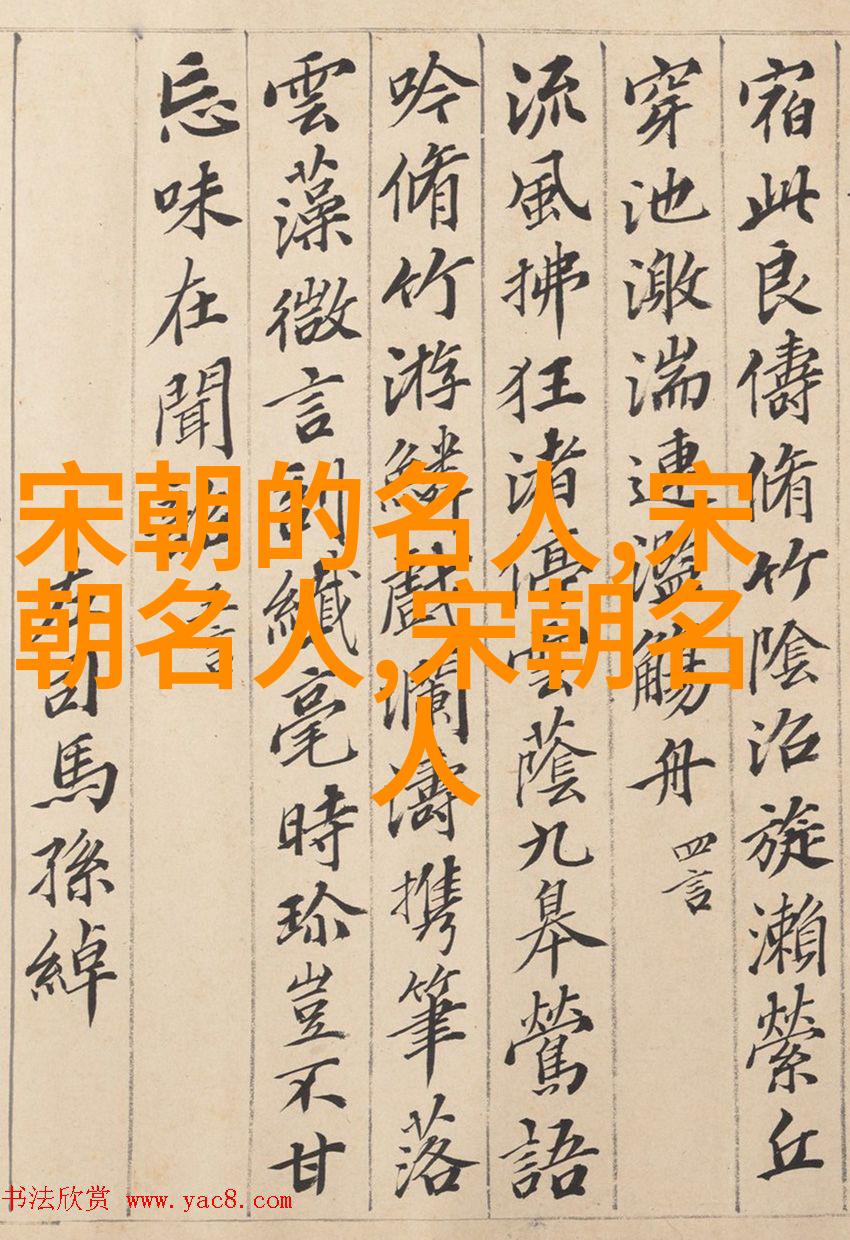 宿此良儔脩竹陰沼旋瀨縈丘
穿池激湍連濫觴舟 四言
流風拂狂渚停雲蔭九皋鶯語
吟脩竹游鱗戲瀾濤携筆落
雲藻微言剖纖毫時珎豈不甘
忘味在聞韶 五言
左司馬孫綽
宋朝的名人,宋
朝名人,宋朝名
人
书法欣赏 www.yac8.com